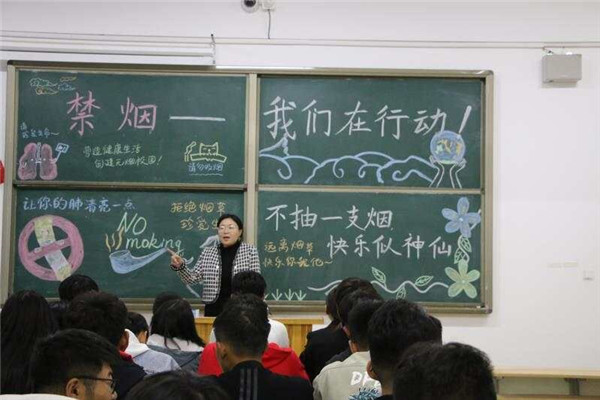 禁烟——
我们在行动!
营造健康生活
创建无烟校园!
请勿吸烟
让你的肺清亮一点
NO
smoking
拒绝烟草
珍爱生
不抽一支烟
快乐似神仙
远离烟草
快乐你我他~